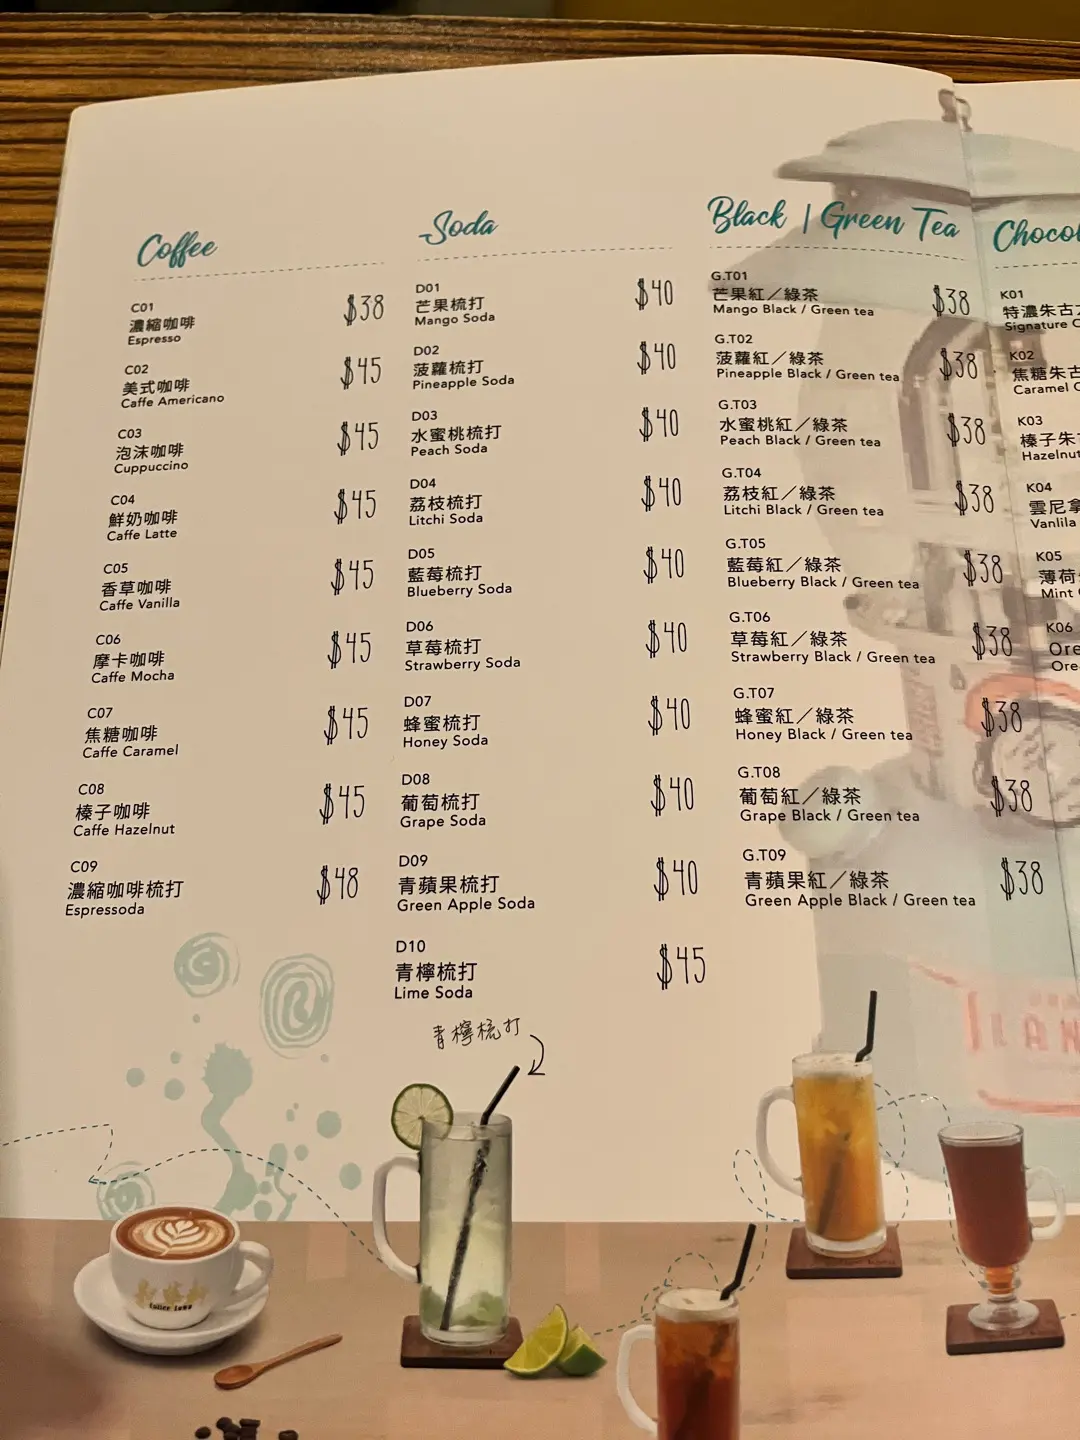 Coffee
C01
濃縮咖啡 $38
Espresso
C02
美式咖啡 $45
Caffe Americano
C03
泡沫咖啡 $45
Cuppuccino
C04
鮮奶咖啡 $45
Caffe Latte
C05
香草咖啡 $45
Caffe Vanilla
C06
摩卡咖啡 $45
Caffe Mocha
C07
焦糖咖啡 $45
Caffe Caramel
C08
榛子咖啡 $45
Caffe Hazelnut
C09
濃縮咖啡梳打 $48
Espressoda
Soda
D01
芒果梳打 $40
Mango Soda
D02
菠蘿梳打 $40
Pineapple Soda
D03
水蜜桃梳打 $40
Peach Soda
D04
荔枝梳打 $40
Litchi Soda
D05
藍莓梳打 $40
Blueberry Soda
D06
草莓梳打 $40
Strawberry Soda
D07
蜂蜜梳打 $40
Honey Soda
D08
葡萄梳打 $40
Grape Soda
D09
青蘋果梳打 $40
Green Apple Soda
D10
青檸梳打 $45
Lime Soda
青檸梳打
Black | Green Tea
G.T01
芒果紅／綠茶 $38
Mango Black / Green tea
G.T02
菠蘿紅／綠茶 $38
Pineapple Black / Green tea
G.T03
水蜜桃紅／綠茶 $38
Peach Black / Green tea
G.T04
荔枝紅／綠茶 $38
Litchi Black / Green tea
G.T05
藍莓紅／綠茶 $38
Blueberry Black / Green tea
G.T06
草莓紅／綠茶 $38
Strawberry Black / Green tea
G.T07
蜂蜜紅／綠茶 $38
Honey Black / Green tea
G.T08
葡萄紅／綠茶 $38
Grape Black / Green tea
G.T09
青蘋果紅／綠茶 $38
Green Apple Black / Green tea
Chocol
K01
特濃朱古
Signature C
K02
焦糖朱古
Caramel C
K03
榛子朱
Hazelnut
K04
雲尼拿
Vanlila
K05
薄荷
Mint
K06
Ore
Ore